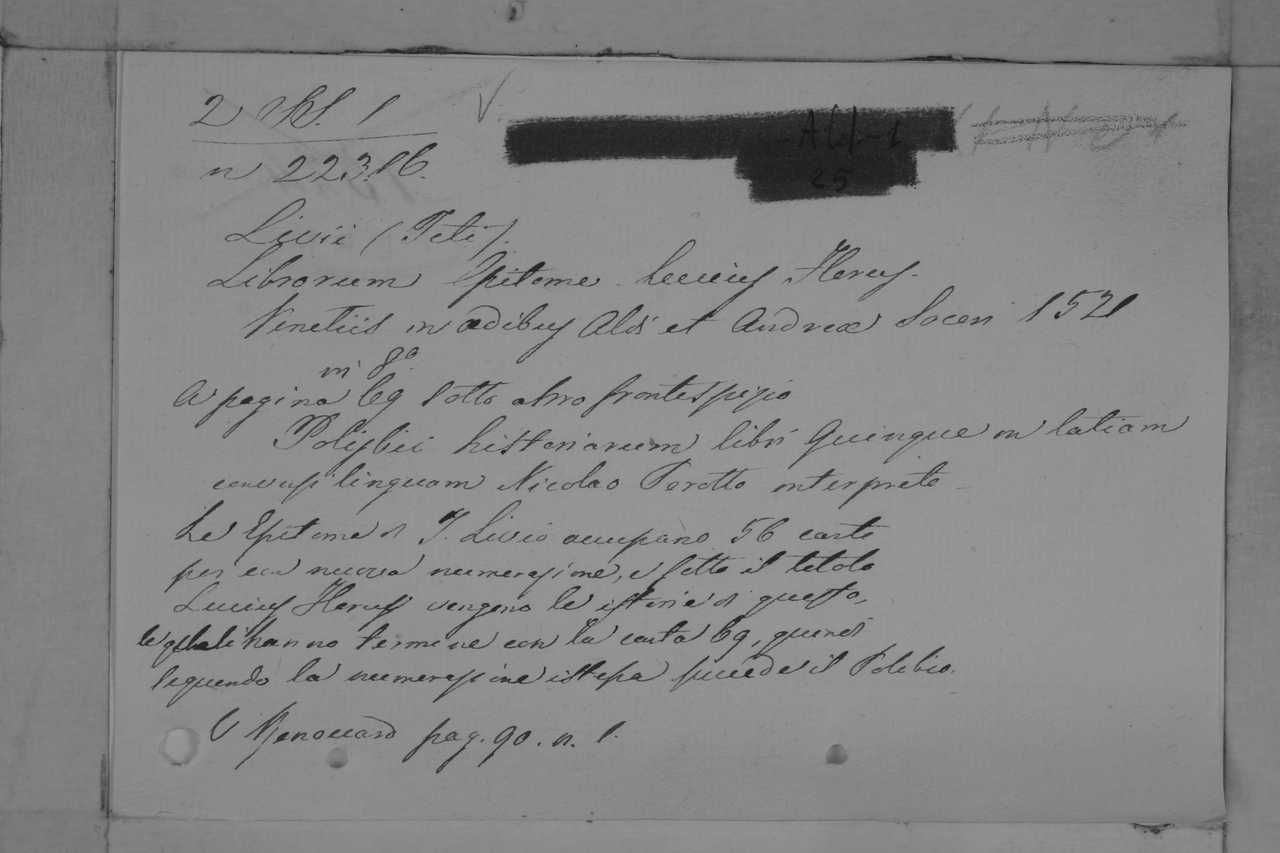 2 SS. 1
V.
Ald-1
25
n 22316.
Livii (Titi).
Librorum Epitome. Lucius Florus.
Venetiis in ædibus Aldi et Andreæ Soceri 1521
in 8º
A pagina 69 sotto altro frontespizio
Polijbii historiarum libri quinque in latiam
conversi linguam Nicolao Perotto interprete
Le Epitome di T. Livio occupano 56 carte
poi con nuova numerazione, e sotto il titolo
Lucius Florus vengono le istorie di questo,
le quali hanno termine con la carta 69, quindi
seguendo la numerazione istessa succede il Polibio.
V Renouard pag. 90. n. 1.